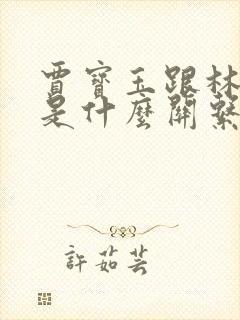 賈寶玉跟林
是什麼關繫
許茹芸